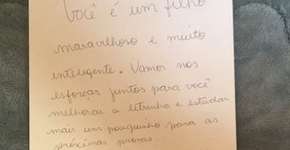 Você é um filho
maravilhoso e muito
inteligente. Vamos nos
esforçar juntos para você
melhorar a letrinha e estudar
mais um pouquinho para as
próximas provas.